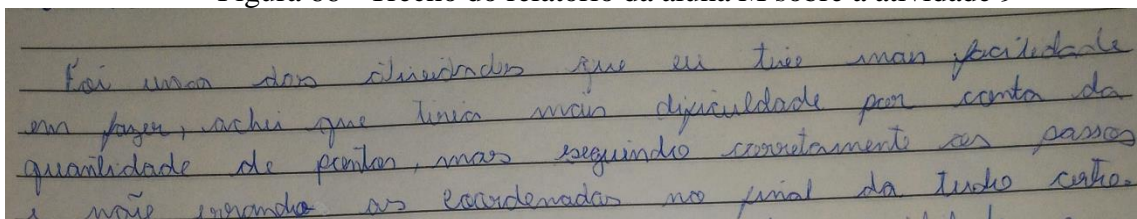 Figura 66 – Trecho do relatório da aluna M sobre a atividade 9
Foi umas das atividades que eu tive mais facilidade
em fazer, achei que teria mais dificuldade por conta da
quantidade de pontos, mas seguindo corretamente os passos
e não errando as coordenadas no final da tudo certo.